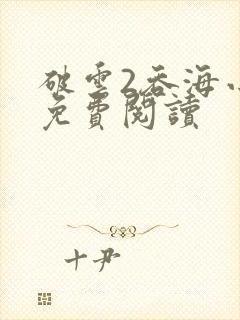 破雲2吞海小
免費閱讀
十尹